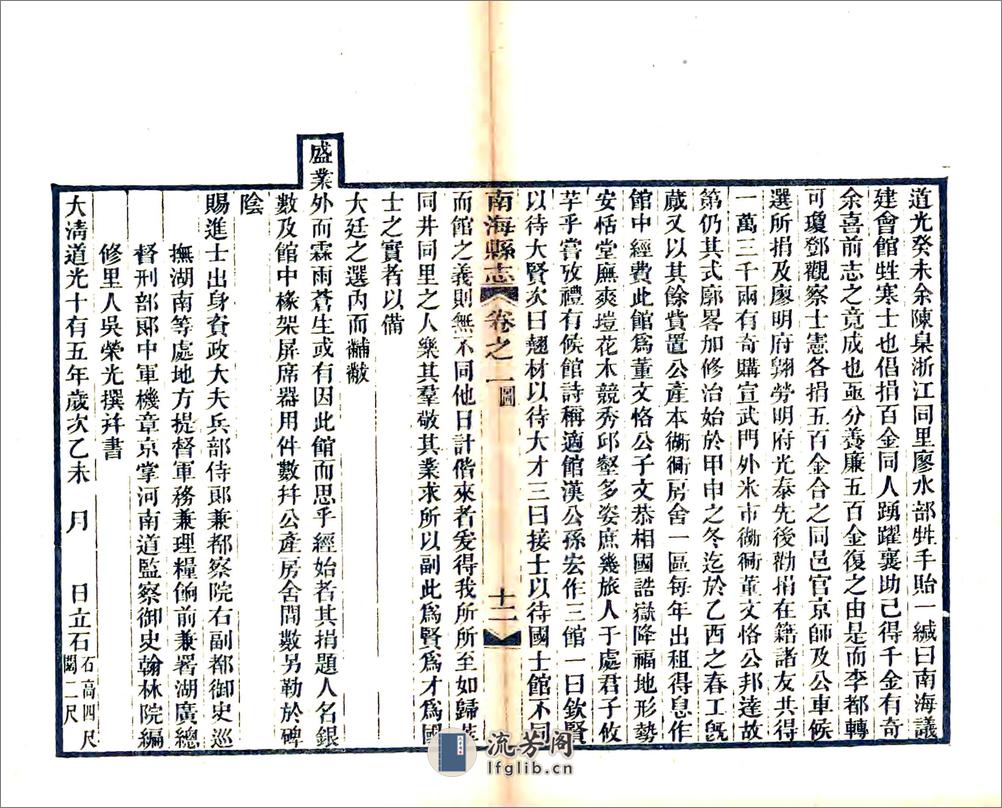 道光癸未余陳臬浙江同里廖水部甡手貽一緘曰南海議
建會館甡寒士也倡捐百金同人踴躍襄助已得千金有奇
余喜前志之竟成也亟分養廉五百金復之由是而李都轉
可瓊鄧觀察士憲各捐五百金合之同邑官京師及公車候
選所捐及廖明府翺勞明府光泰先後勸捐在籍諸友共得
一萬三千兩有奇購宣武門外米市衚衕董文恪公邦達故
第仍其式廓畧加修治始於甲申之冬迄於乙酉之春工旣
蕆又以其餘貲置公產本衚衕房舍一區每年出租得息作
館中經費此館爲董文恪公子文恭相國誥嶽降福地形勢
安恬堂廡爽塏花木競秀邱壑多姿庶幾旅人于處君子攸
芋乎嘗攷禮有候館詩稱適館漢公孫宏作三館一曰欽賢
以待大賢次曰翹材以待大才三曰接士以待國士館不同
南海縣志 卷之一 圖 十二
而館之義則無不同他日計偕來者爰得我所所至如歸萃
同井同里之人樂其羣敬其業求所以副此爲賢爲才爲國
士之實者以備
大廷之選內而黼黻
盛業外而霖雨蒼生或有因此館而思乎經始者其捐題人名銀
數及館中椽架屏席器用件數幷公產房舍間數另勒於碑
陰
賜進士出身資政大夫兵部侍郞兼都察院右副都御史巡
撫湖南等處地方提督軍務兼理糧餉前兼署湖廣總
督刑部郞中軍機章京掌河南道監察御史翰林院編
修里人吳榮光撰幷書
大淸道光十有五年歲次乙未 月 日立石 石高四尺闊二尺
流芳阁
lfglib.cn